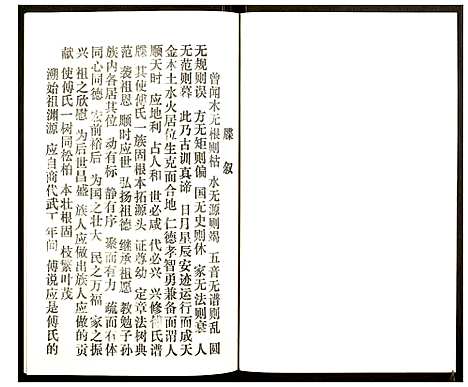 牒叙
曾闻木无根则枯 水无源则竭 五音无谱则乱 圆
无规则误 方无矩则偏 国无史则休 家无法则衰 人
无范则暮 此乃古训真谛 日月星辰安迹运行而成天
金木土水火居位生克而合地 仁德孝智勇兼备而谓人
顺天时 应地利 占人和 世必咸 代必兴 兴修傅氏谱
牒 其使傅氏一族固根本拓源头 证尊幼 定章法树典
范 袭祖恩 顺时应世 弘扬祖德 继承祖愿 教勉子孙
族内各居其位 动有标 静有序 聚而有力 疏而石体
同心同德 宏前裕后 为国之壮大 民之万福 家之振
兴 祖之欣慰 为后世昌盛 族人应做出族人应做的贡
献 使傅氏一树同松柏 本壮根固 枝繁叶茂
溯始祖渊源 应自商代武丁年间 傅说应是傅氏的